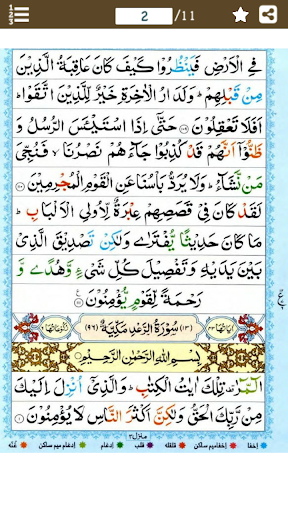 2 /11
فِي الْاَرْضِ فَيَنْظُرُوْا كَيْفَ كَانَ عَاقِبَةُ الَّذِيْنَ
مِنْ قَبْلِهِمْ ؕ وَلَدَارُ الْاٰخِرَةِ خَيْرٌ لِّلَّذِيْنَ اتَّقَوْا ؕ
اَفَلَا تَعْقِلُوْنَ ۝۱۰۹ حَتّٰۤى اِذَا اسْتَيْـَٔسَ الرُّسُلُ وَ
ظَنُّوْۤا اَنَّهُمْ قَدْ كُذِبُوْا جَآءَهُمْ نَصْرُنَا ۙ فَنُجِّيَ
مَنْ نَّشَآءُ ؕ وَلَا يُرَدُّ بَاْسُنَا عَنِ الْقَوْمِ الْمُجْرِمِيْنَ ۝۱۱۰
لَقَدْ كَانَ فِيْ قَصَصِهِمْ عِبْرَةٌ لِّاُولِي الْاَلْبَابِ ؕ
مَا كَانَ حَدِيْثًا يُّفْتَرٰى وَلٰكِنْ تَصْدِيْقَ الَّذِيْ
بَيْنَ يَدَيْهِ وَتَفْصِيْلَ كُلِّ شَيْءٍ وَّهُدًى وَّ
رَحْمَةً لِّقَوْمٍ يُّؤْمِنُوْنَ ۝۱۱۱
اٰيَاتُهَا ۴۳ (۱۳) سُوْرَةُ الرَّعْدِ مَدَنِيَّةٌ (۹۶) رُكُوْعَاتُهَا ۶
بِسْمِ اللّٰهِ الرَّحْمٰنِ الرَّحِيْمِ
الٓمّٓرٰ ۫ تِلْكَ اٰيٰتُ الْكِتٰبِ ؕ وَالَّذِيْۤ اُنْزِلَ اِلَيْكَ
مِنْ رَّبِّكَ الْحَقُّ وَلٰكِنَّ اَكْثَرَ النَّاسِ لَا يُؤْمِنُوْنَ ۝۱
منزل ۳
اخفا اخفا میم ساکن قلقلہ قلب ادغام ادغام میم ساکن غُنّہ